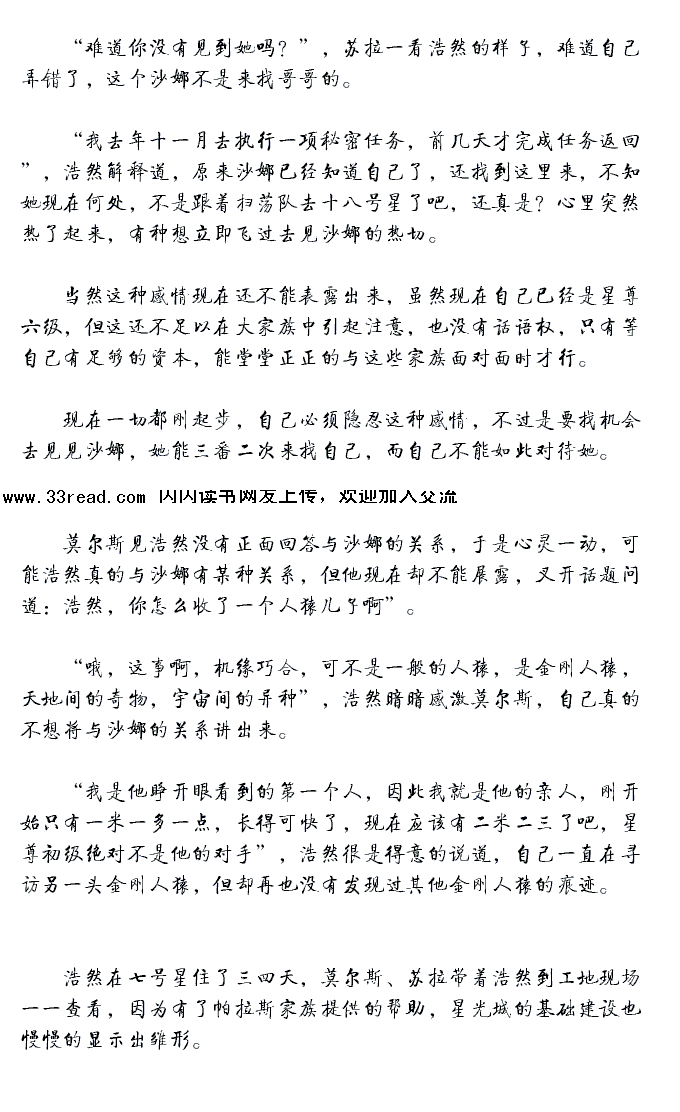 “难道你没有见到她吗？”，苏拉一看浩然的样子，难道自己
弄错了，这个沙娜不是来找哥哥的。
“我去年十一月去执行一项秘密任务，前几天才完成任务返回
”，浩然解释道，原来沙娜已经知道自己了，还找到这里来，不知
她现在何处，不是跟着扫荡队去十八号星了吧，还真是？心里突然
热了起来，有种想立即飞过去见沙娜的热切。
当然这种感情现在还不能表露出来，虽然现在自己已经是星尊
六级，但这还不足以在大家族中引起注意，也没有话语权，只有等
自己有足够的资本，能堂堂正正的与这些家族面对面时才行。
现在一切都刚起步，自己必须隐忍这种感情，不过是要找机会
去见见沙娜，她能三番二次来找自己，而自己不能如此对待她。
www.33read.com 闪闪读书网友上传，欢迎加入交流
莫尔斯见浩然没有正面回答与沙娜的关系，于是心灵一动，可
能浩然真的与沙娜有某种关系，但他现在却不能展露，叉开话题问
道：浩然，你怎么收了一个人猿儿子啊”。
“哦，这事啊，机缘巧合，可不是一般的人猿，是金刚人猿，
天地间的奇物，宇宙间的异种”，浩然暗暗感激莫尔斯，自己真的
不想将与沙娜的关系讲出来。
“我是他睁开眼看到的第一个人，因此我就是他的亲人，刚开
始只有一米一多一点，长得可快了，现在应该有二米二三了吧，星
尊初级绝对不是他的对手”，浩然很是得意的说道，自己一直在寻
访另一头金刚人猿，但却再也没有发现过其他金刚人猿的痕迹。
浩然在七号星住了三四天，莫尔斯、苏拉带着浩然到工地现场
一一查看，因为有了帕拉斯家族提供的帮助，星光城的基础建设也
慢慢的显示出雏形。